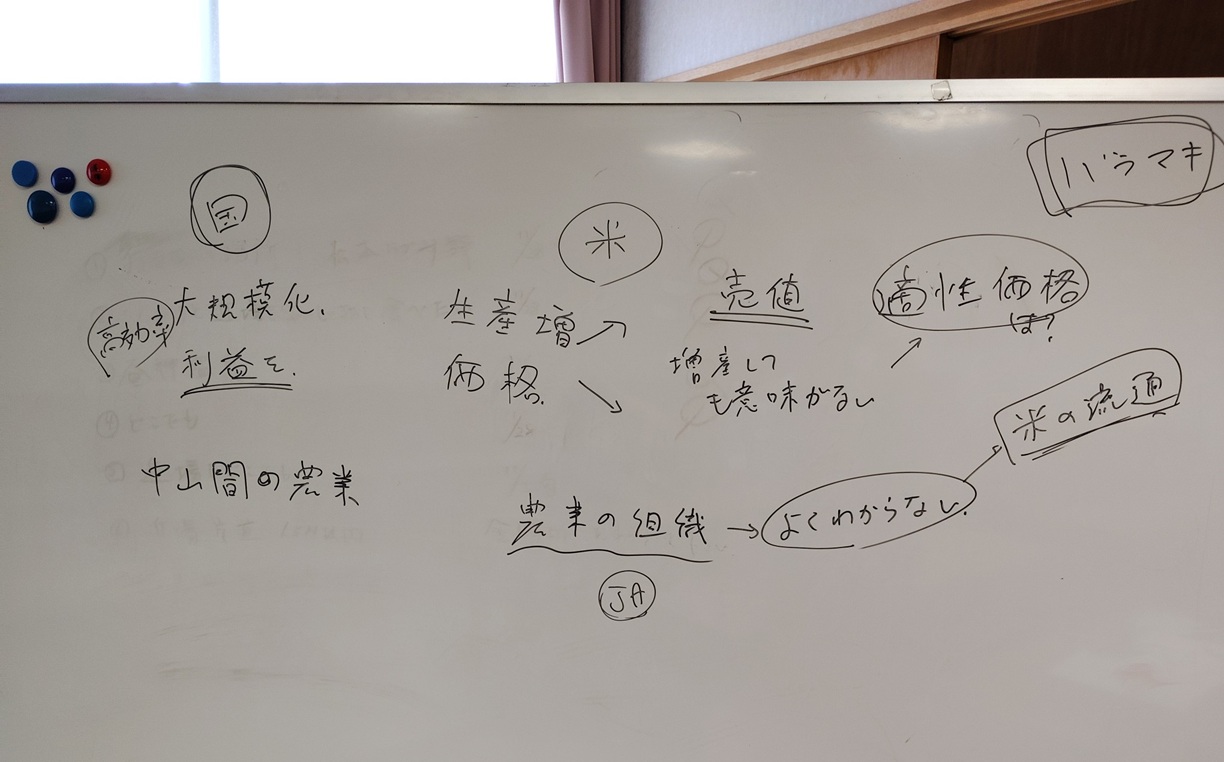 国
高効率
大規模化、
利益を、
中山間の農業
米
生産増↗
価格 ↘
売値
増産して
も意味がない
↗
適性価格
は?
バラマキ
農業の組織 → よくわからない、
JA
米の流通